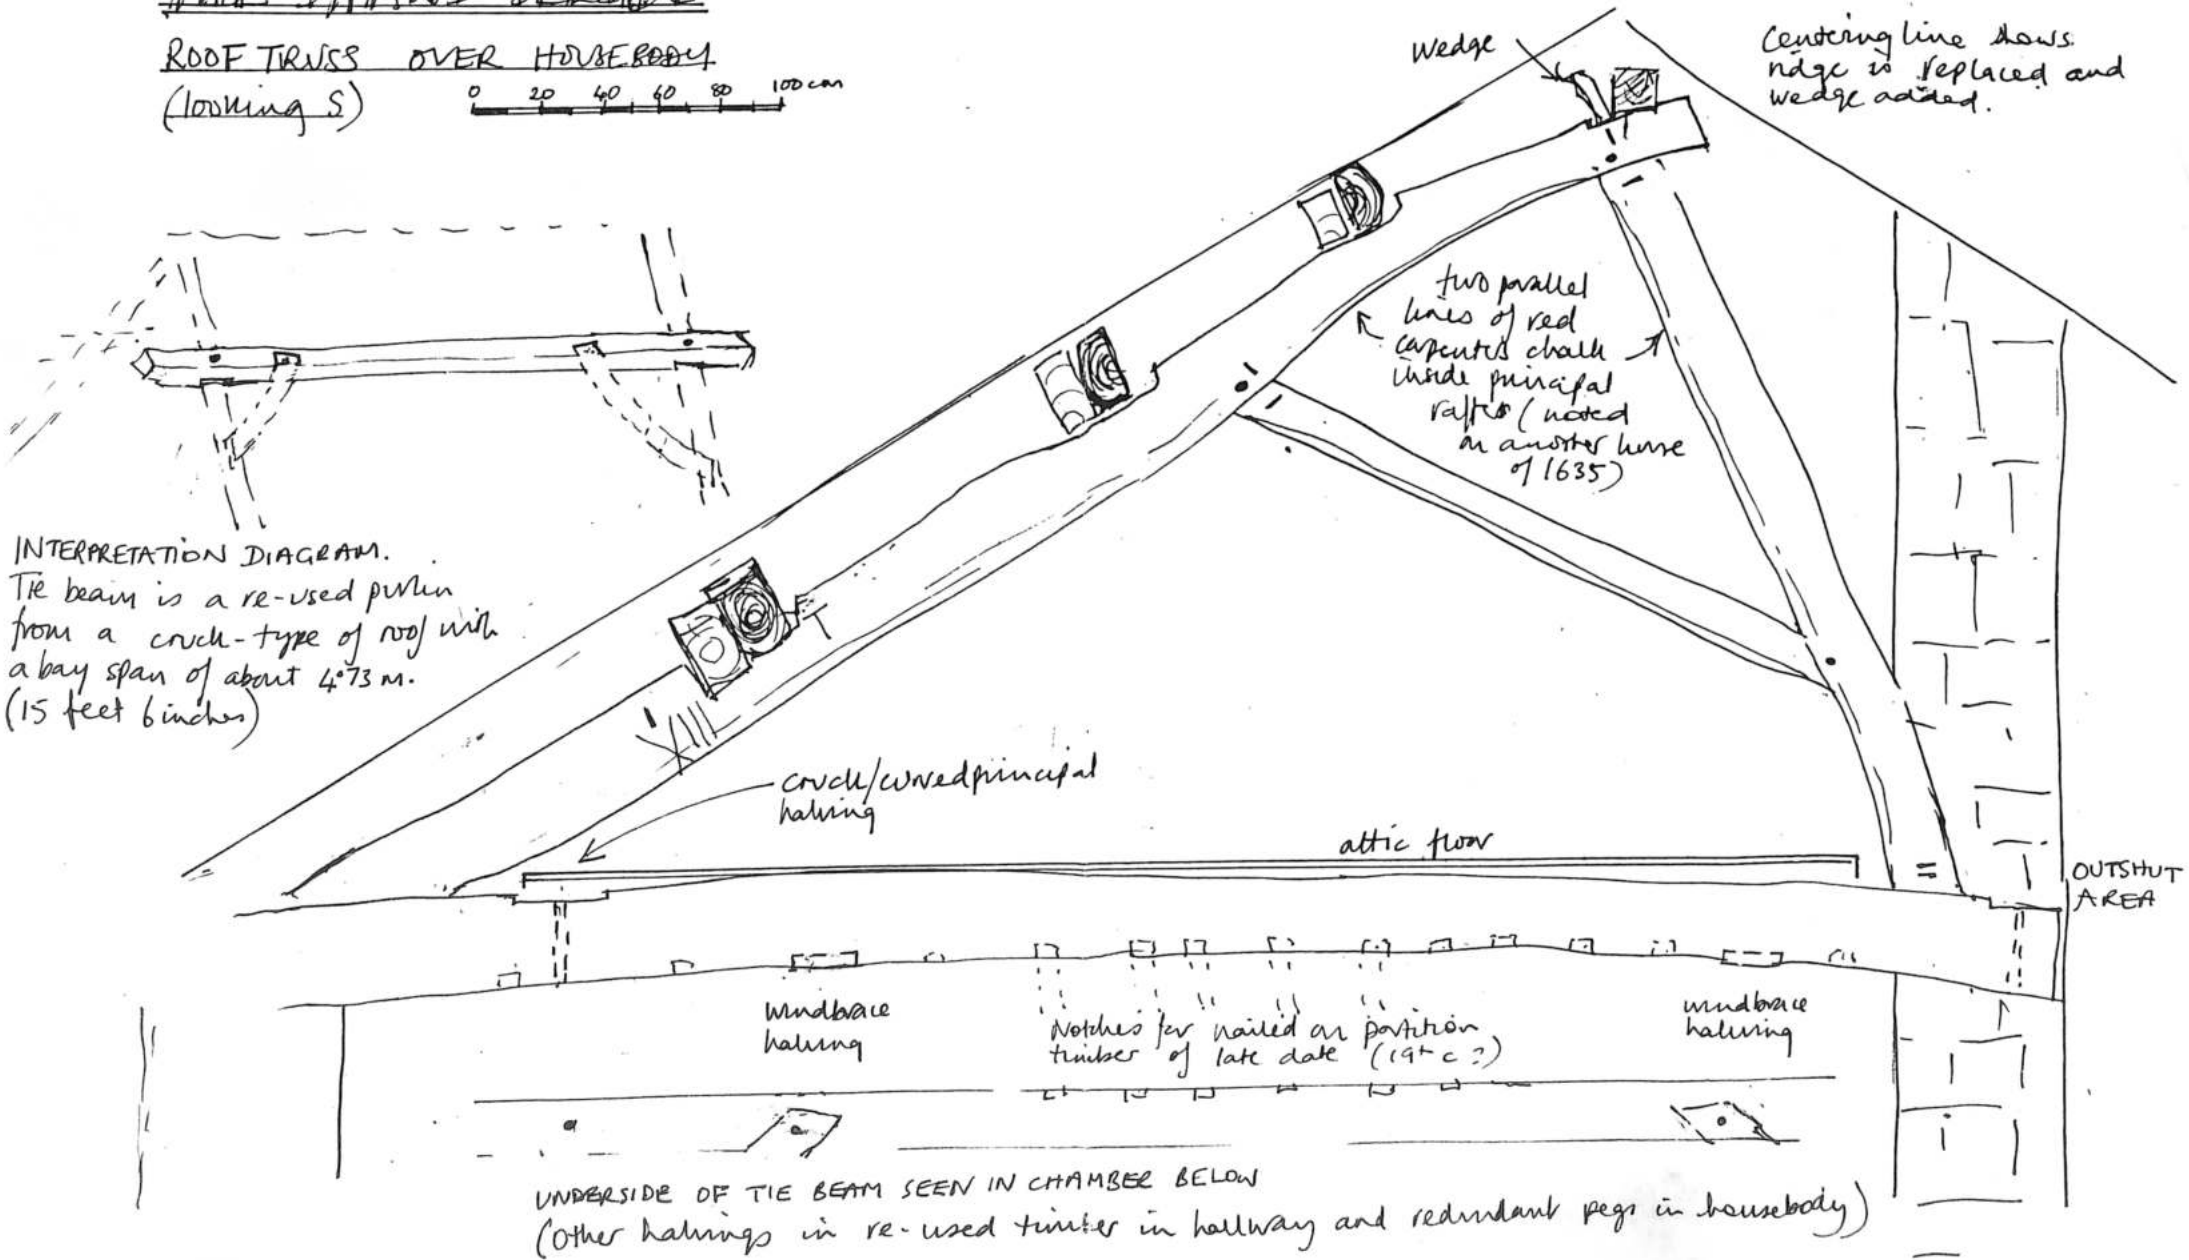 ROOF TRUSS OVER HOUSEBODY
(looking S)
0 20 40 60 80 100 cm
Wedge
Centering line shows
ridge is replaced and
wedge added.
two parallel
lines of red
carpenters chalk
inside principal
rafters (noted
in another house
of 1635)
INTERPRETATION DIAGRAM.
Tie beam is a re-used purlin
from a cruck-type of roof with
a bay span of about 4.73 m.
(15 feet 6 inches)
cruck/curved principal
halving
attic floor
OUTSHUT
AREA
windbrace
halving
Notches for nailed on partition
timber of late date (19th c?)
windbrace
halving
UNDERSIDE OF TIE BEAM SEEN IN CHAMBER BELOW
(other halvings in re-used timber in hallway and redundant pegs in housebody)